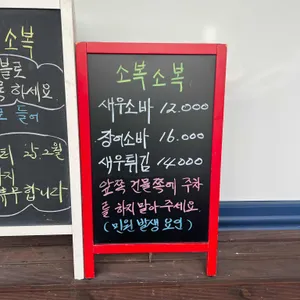 소복
블로
하세요
들어
휴무합니다
소복소복
새우소바 12.000
장어소바 16.000
새우튀김 14.000
앞쪽 건물쪽에 주차
를 하지 말아 주세요.
(민원 발생 요인)